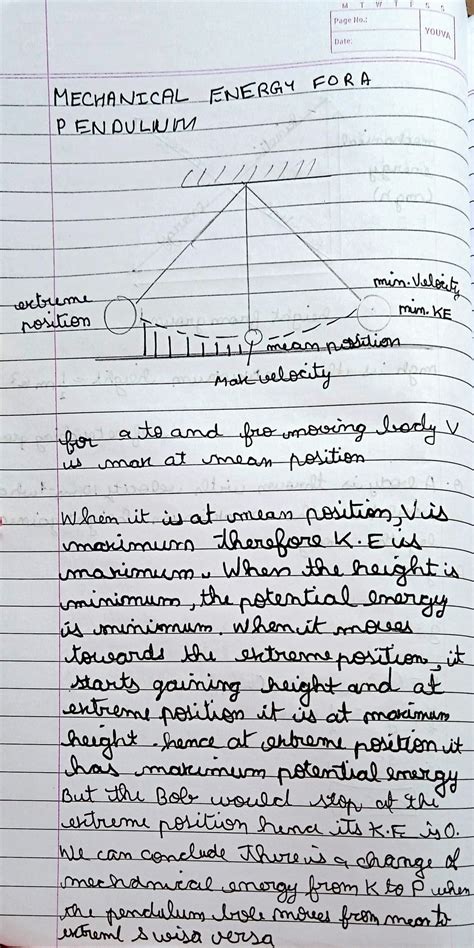 M T W T F S S
Page No.:
Date:
YOUVA
MECHANICAL ENERGY FOR A
PENDULUM
extreme
position
min. Velocity
min. KE
mean position
Max velocity
for a to and fro moving body V
is max at mean position
When it is at mean position, V is
maximum therefore K.E is
maximum. When the height is
minimum, the potential energy
is minimum. When it moves
towards the extreme position, it
starts gaining height and at
extreme position it is at maximum
height. hence at extreme position it
has maximum potential energy
But the Bob would stop at the
extreme position hence its K.E is 0.
We can conclude There is a change of
mechanical energy from K to P when
the pendulum bole moves from mean to
extreme & visa versa